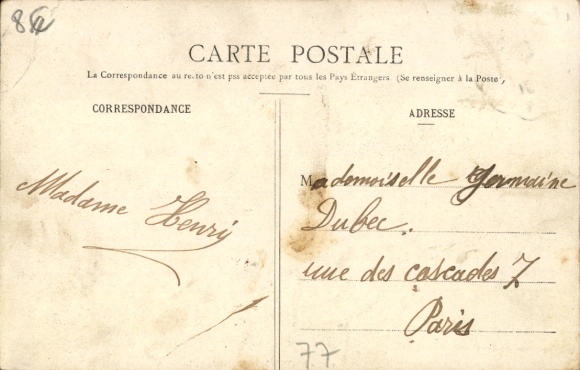 84
CARTE POSTALE
La Correspondance au recto n'est pas acceptée par tous les Pays Étrangers (Se renseigner à la Poste)
CORRESPONDANCE
ADRESSE
Madame Henry
Mademoiselle Germaine
Dubec.
rue des cascades 7
Paris
77